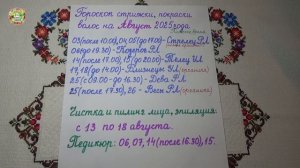 Гороскоп стрижки, покраски
волос на Август 2025 года.
03(после 10.00), 04, 05(до 17.00) - Стрелец РЛ
06(до 19.30) - Козерог РЛ
14(после 17.00), 15(до 20.00) - Телец УЛ
17, 18(до 14.00) - Близнецы УЛ
25(с 09.00 - до 16.30) - Дева РЛ
25(после 17.30), 26 - Весы РЛ
Чистка и пилинг лица, эпиляция:
с 13 по 18 августа.
Педикюр: 06, 07, 14(после 16.30), 15.